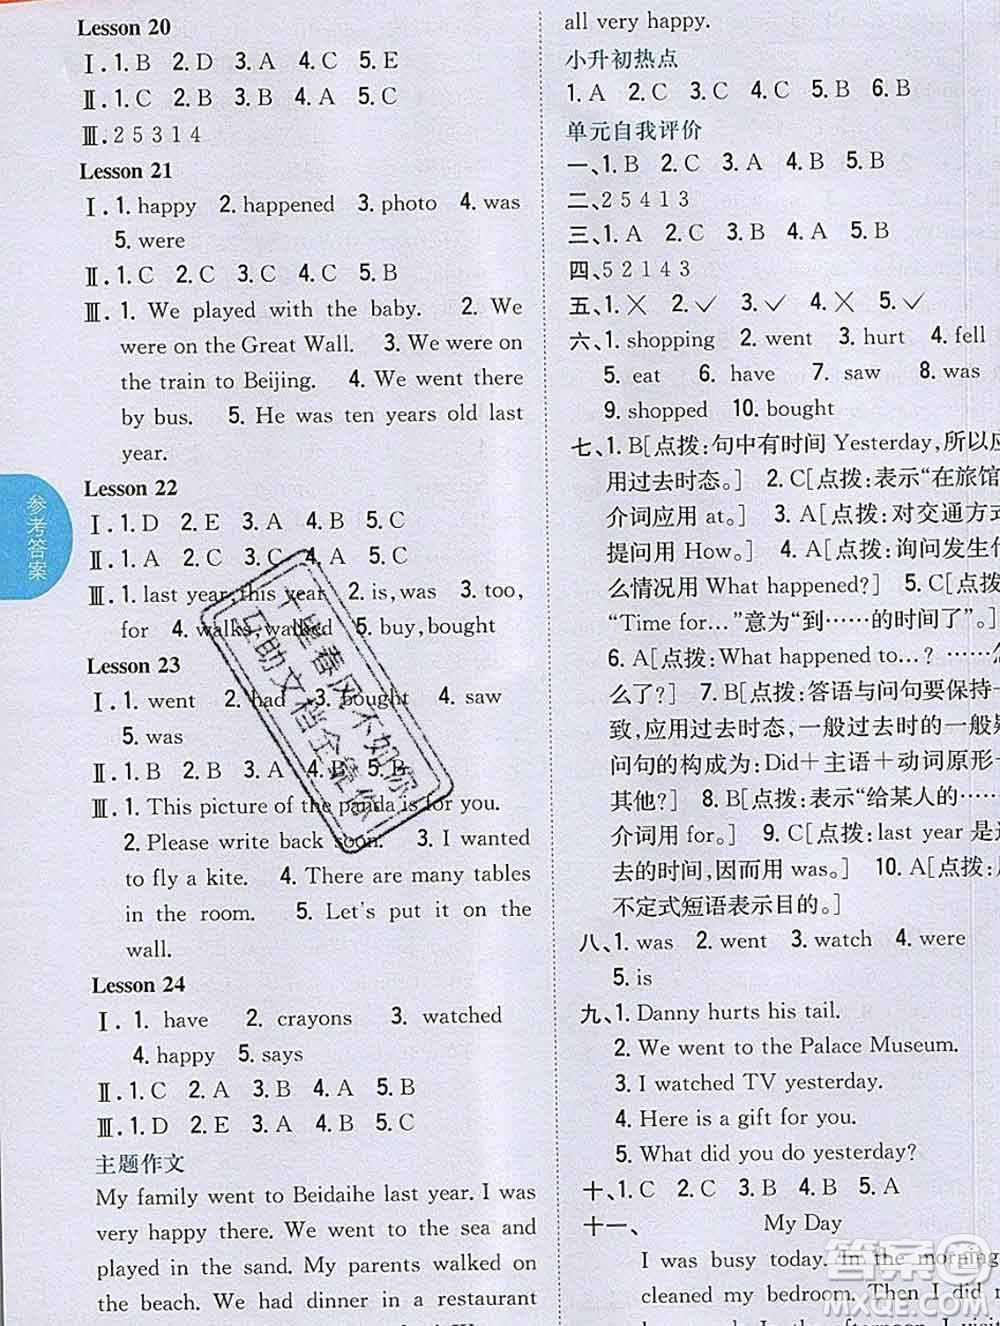 Lesson 20
Ⅰ.1. B 2. D 3. A 4. C 5. E
Ⅱ.1. C 2. C 3. B 4. A 5. C
Ⅲ.2 5 3 1 4
Lesson 21
Ⅰ.1. happy 2. happened 3. photo 4. was
5. were
Ⅱ.1. C 2. C 3. C 4. C 5. B
Ⅲ.1. We played with the baby. 2. We
were on the Great Wall. 3. We were on
the train to Beijing. 4. We went there
by bus. 5. He was ten years old last
year.
参考答案
Lesson 22
Ⅰ.1. D 2. E 3. A 4. B 5. C
Ⅱ.1. A 2. C 3. C 4. C 5. A
Ⅲ.1. last year, this year 2. is, was 3. too,
for 4. walks, walked 5. buy, bought
Lesson 23
Ⅰ.1. went 2. had 3. bought 4. saw
5. was
Ⅱ.1. B 2. B 3. A 4. B 5. B
Ⅲ.1. This picture of the panda is for you.
2. Please write back soon. 3. I wanted
to fly a kite. 4. There are many tables
in the room. 5. Let's put it on the
wall.
Lesson 24
Ⅰ.1. have 2. crayons 3. watched
4. happy 5. says
Ⅱ.1. C 2. A 3. B 4. A 5. B
Ⅲ.1. D 2. E 3. A 4. B 5. C
主题作文
My family went to Beidaihe last year. I was
very happy there. We went to the sea and
played in the sand. My parents walked on
the beach. We had dinner in a restaurant
all very happy.
小升初热点
1. A 2. C 3. C 4. C 5. B 6. B
单元自我评价
一、1. B 2. C 3. A 4. C 5. B
二、2 5 4 1 3
三、1. A 2. C 3. B 4. A 5. C
四、5 2 1 4 3
五、1. ✕ 2. ✓ 3. ✓ 4. ✕ 5. ✓
六、1. shopping 2. went 3. hurt 4. fell
5. eat 6. have 7. saw 8. was
9. shopped 10. bought
七、1. B[点拨:句中有时间 Yesterday,所以应
用过去时态。] 2. C[点拨:表示“在旅馆
介词应用 at。] 3. A[点拨:对交通方式
提问用 How。] 4. A[点拨:询问发生什
么情况用 What happened?] 5. C[点拨:
“Time for…”意为“到……的时间了”。]
6. A[点拨:What happened to…? ……怎
么了?] 7. B[点拨:答语与问句要保持一
致,应用过去时态,一般过去时的一般疑
问句的构成为:Did+主语+动词原形+
其他?] 8. B[点拨:表示“给某人的……
介词用 for。] 9. C[点拨:last year 是过
去的时间,因而用 was。] 10. A[点拨:
不定式短语表示目的。]
八、1. was 2. went 3. watch 4. were
5. is
九、1. Danny hurts his tail.
2. We went to the Palace Museum.
3. I watched TV yesterday.
4. Here is a gift for you.
5. What did you do yesterday?
十、1. C 2. A 3. B 4. B 5. A
十一、 My Day
I was busy today. In the morning
cleaned my bedroom. Then I did
千里春风不如你
互助文档全靠你
答案圈
MXQE.COM